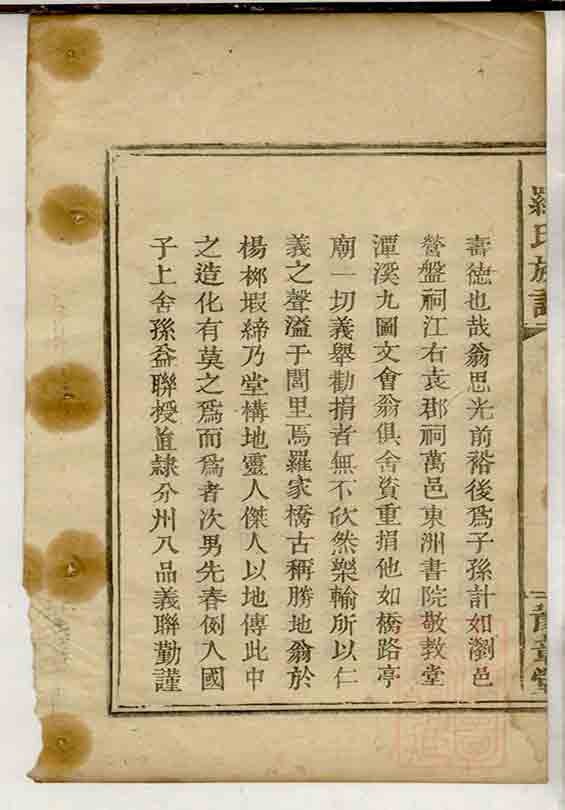 羅氏族譜
豫章堂
壽德也哉翁思光前裕後爲子孫計如瀏邑
營盤祠江右袁郡祠萬邑東洲書院敬教堂
潭溪九圖文會翁俱舍資重捐他如橋路亭
廟一切義舉勸捐者無不欣然樂輸所以仁
義之聲溢于閭里焉羅家橋古稱勝地翁於
楊梛塅締乃堂構地靈人傑人以地傳此中
之造化有莫之爲而爲者次男先春例入國
子上舍孫益聯授直隸分州八品義聯勤謹